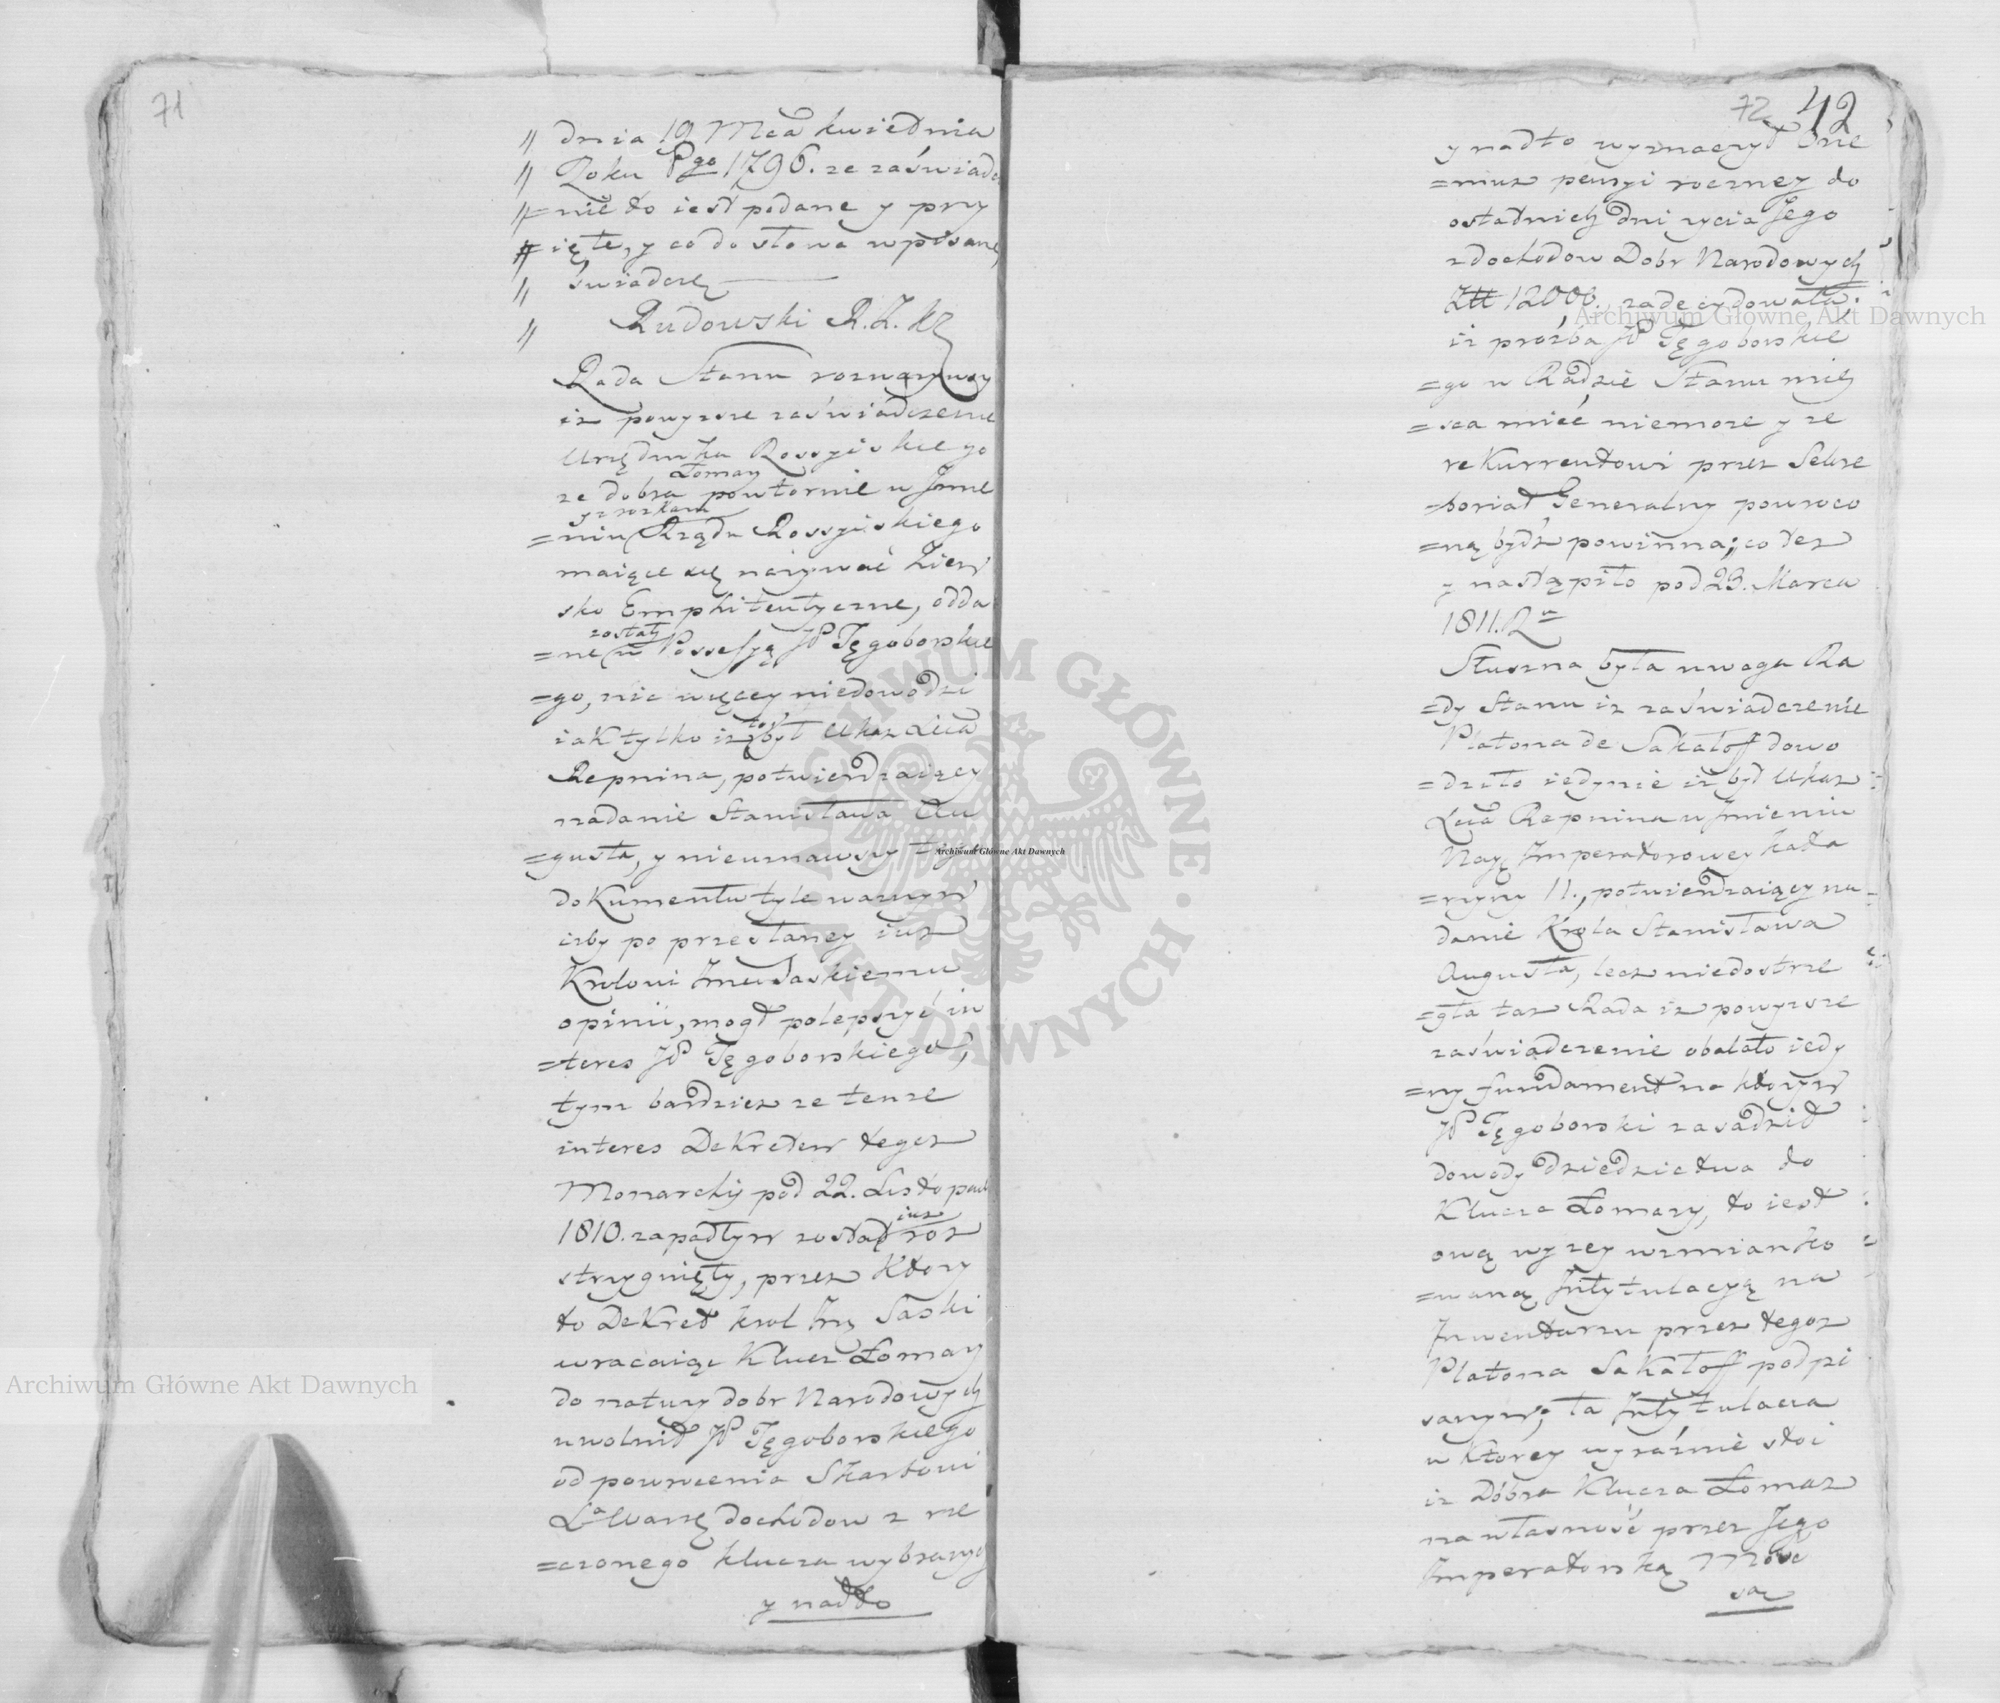 71
" dnia 19 Mca kwietnia
" Roku Pgo 1796. ze zaświadcze
" =nie to iest podane y przy
" ięte, y co do słowa wpisane,
" świadczę
" Rudowski R. Z. K
Rada Stanu rozważywszy
iż powyższe zaświadczenie
Urzędnika Rossyiskiego
że dobra Łomazy powtórnie w Imie
=niu y z rozkazu Rządu Rossyiskiego
maiące się nazywać
sko Emphiteutyczne, odda
=ne zostały w Possessyą JP Tęgoborskie
=go, nic więcey niedowodzi
iak tylko iż to był Ukaz Xcia
Repnina, potwierdzaiący
nadanie Stanisława Au
=gusta, y nieuznawszy tego
dokumentu tyle ważnym
iżby po przesłaney iuż
Krolowi Jmci Saskiemu
opinii, mogł polepszyć in
=teres JP Tęgoborskiego,
tym bardziey że tenże
interes Dekretem tegoż
Monarchy pod 22. Listopada
1810. zapadłym został iuż roz
strzygnięty, przez który
to Dekret Krol Jmć Saski
wracaiąc Klucz Łomazy
do natury dobr Narodowych
uwolnił JP Tęgoborskiego
od powrócenia Skarbowi
Xa Warsz dochodow z rze
=czonego klucza wybranych
y nadto
72 42
y nadto wyznaczył One
=muż pensyi roczney do
ostatnich dni życia Jego
z dochodow Dobr Narodowych
Złł 12000. zadecydowała;
iż prośba JP Tęgoborskie
=go w Radzie Stanu miey
=sca mieć niemoże y że
rekurrentowi przez Sekre
=toriat Generalny powróco
=ną bydź powinna; co też
y nastąpiło pod 23. Marca
1811. Ru
Słuszna była uwaga Ra
=dy Stanu iż zaświadczenie
Platona de Sakałoff dowo
=dziło iedynie iż był Ukaz
Xcia Repnina w Imieniu
Nayi Imperatorowey Kata
=rzyny II., potwierdzaiący na
danie Krola Stanisława
Augusta, lecz niedostrze
=gła taż Rada iż powyższe
zaświadczenie obalało iedy
=ny fundament na którym
JP Tęgoborski zasadził
dowody dziedzictwa do
Klucza Łomazy, to iest
ową wyżey wzmianko
=waną Intytulacyą na
Inwentarzu przez tegoż
Platona Sakałoff podpi
sanym; ta Intytulacya
w którey wyraźnie stoi
iż Dóbra Klucza Łomaz
na własność przez Jego
Imperatorską Mość
są
Archiwum Główne Akt Dawnych
Archiwum Główne Akt Dawnych
Archiwum Główne Akt Dawnych
ARCHIWUM GŁÓWNE AKT DAWNYCH